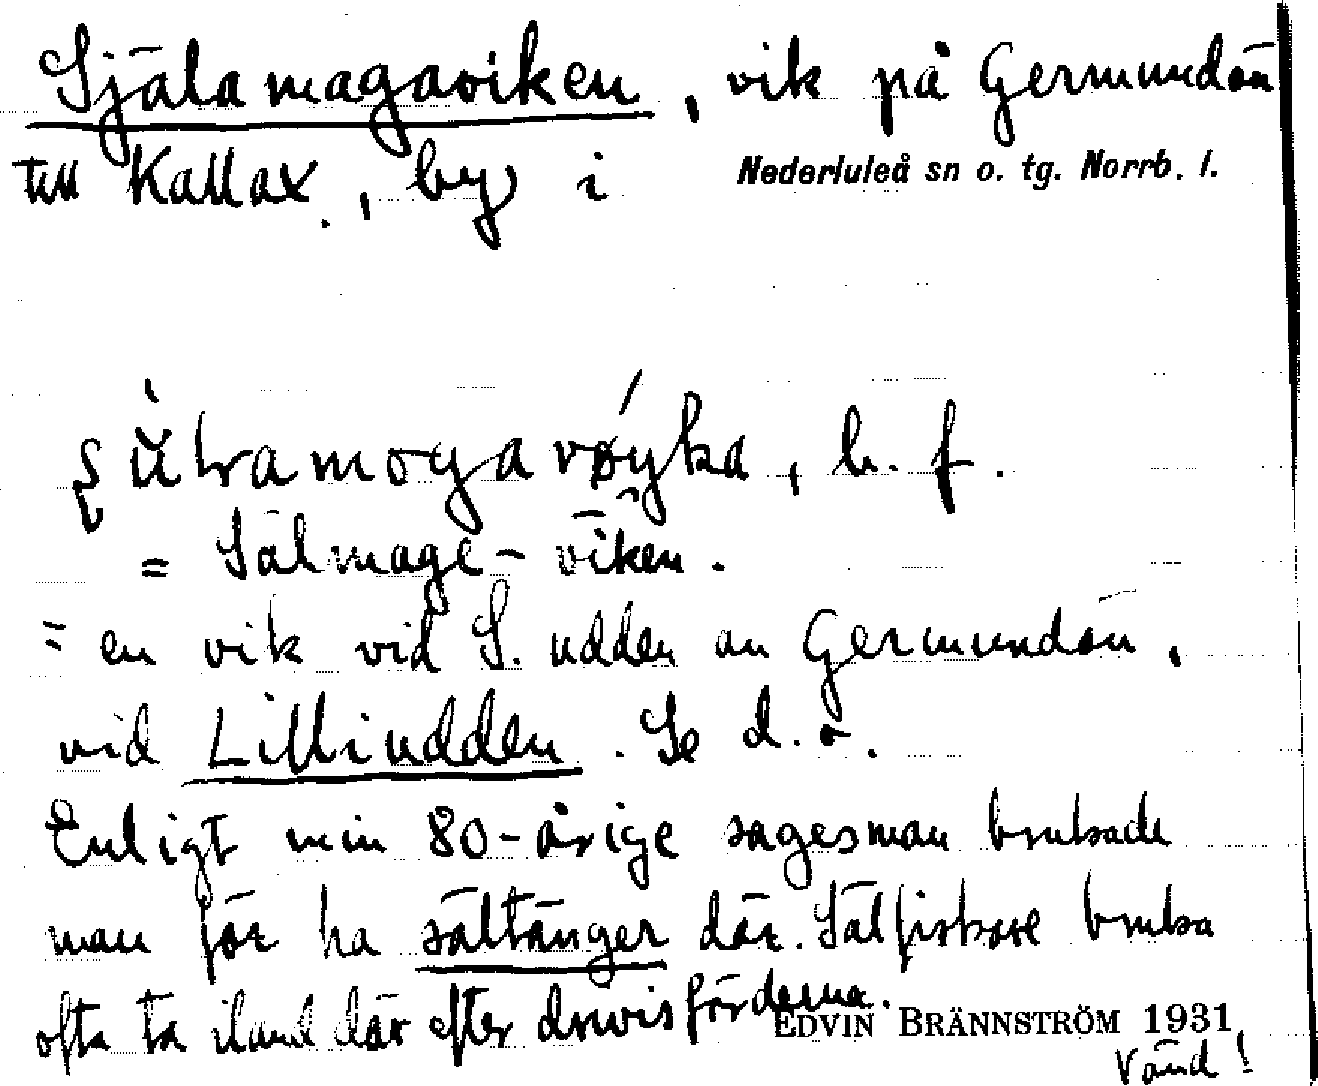 Själamagaviken, vik på Germundön
till Kallax, by i Nederluleå sn o. tg. Norrb. l.
b. f.
= Sälmage-viken.
= en vik vid S. udden av Germundön,
vid Lilliudden. Se d. o.
Enligt min 80-årige sagesman brukade
man för ha sältänger där. Sälfiskare bruka
ofta ta iland där efter drevisfärderna.
EDVIN BRÄNNSTRÖM 1931
Vänd!